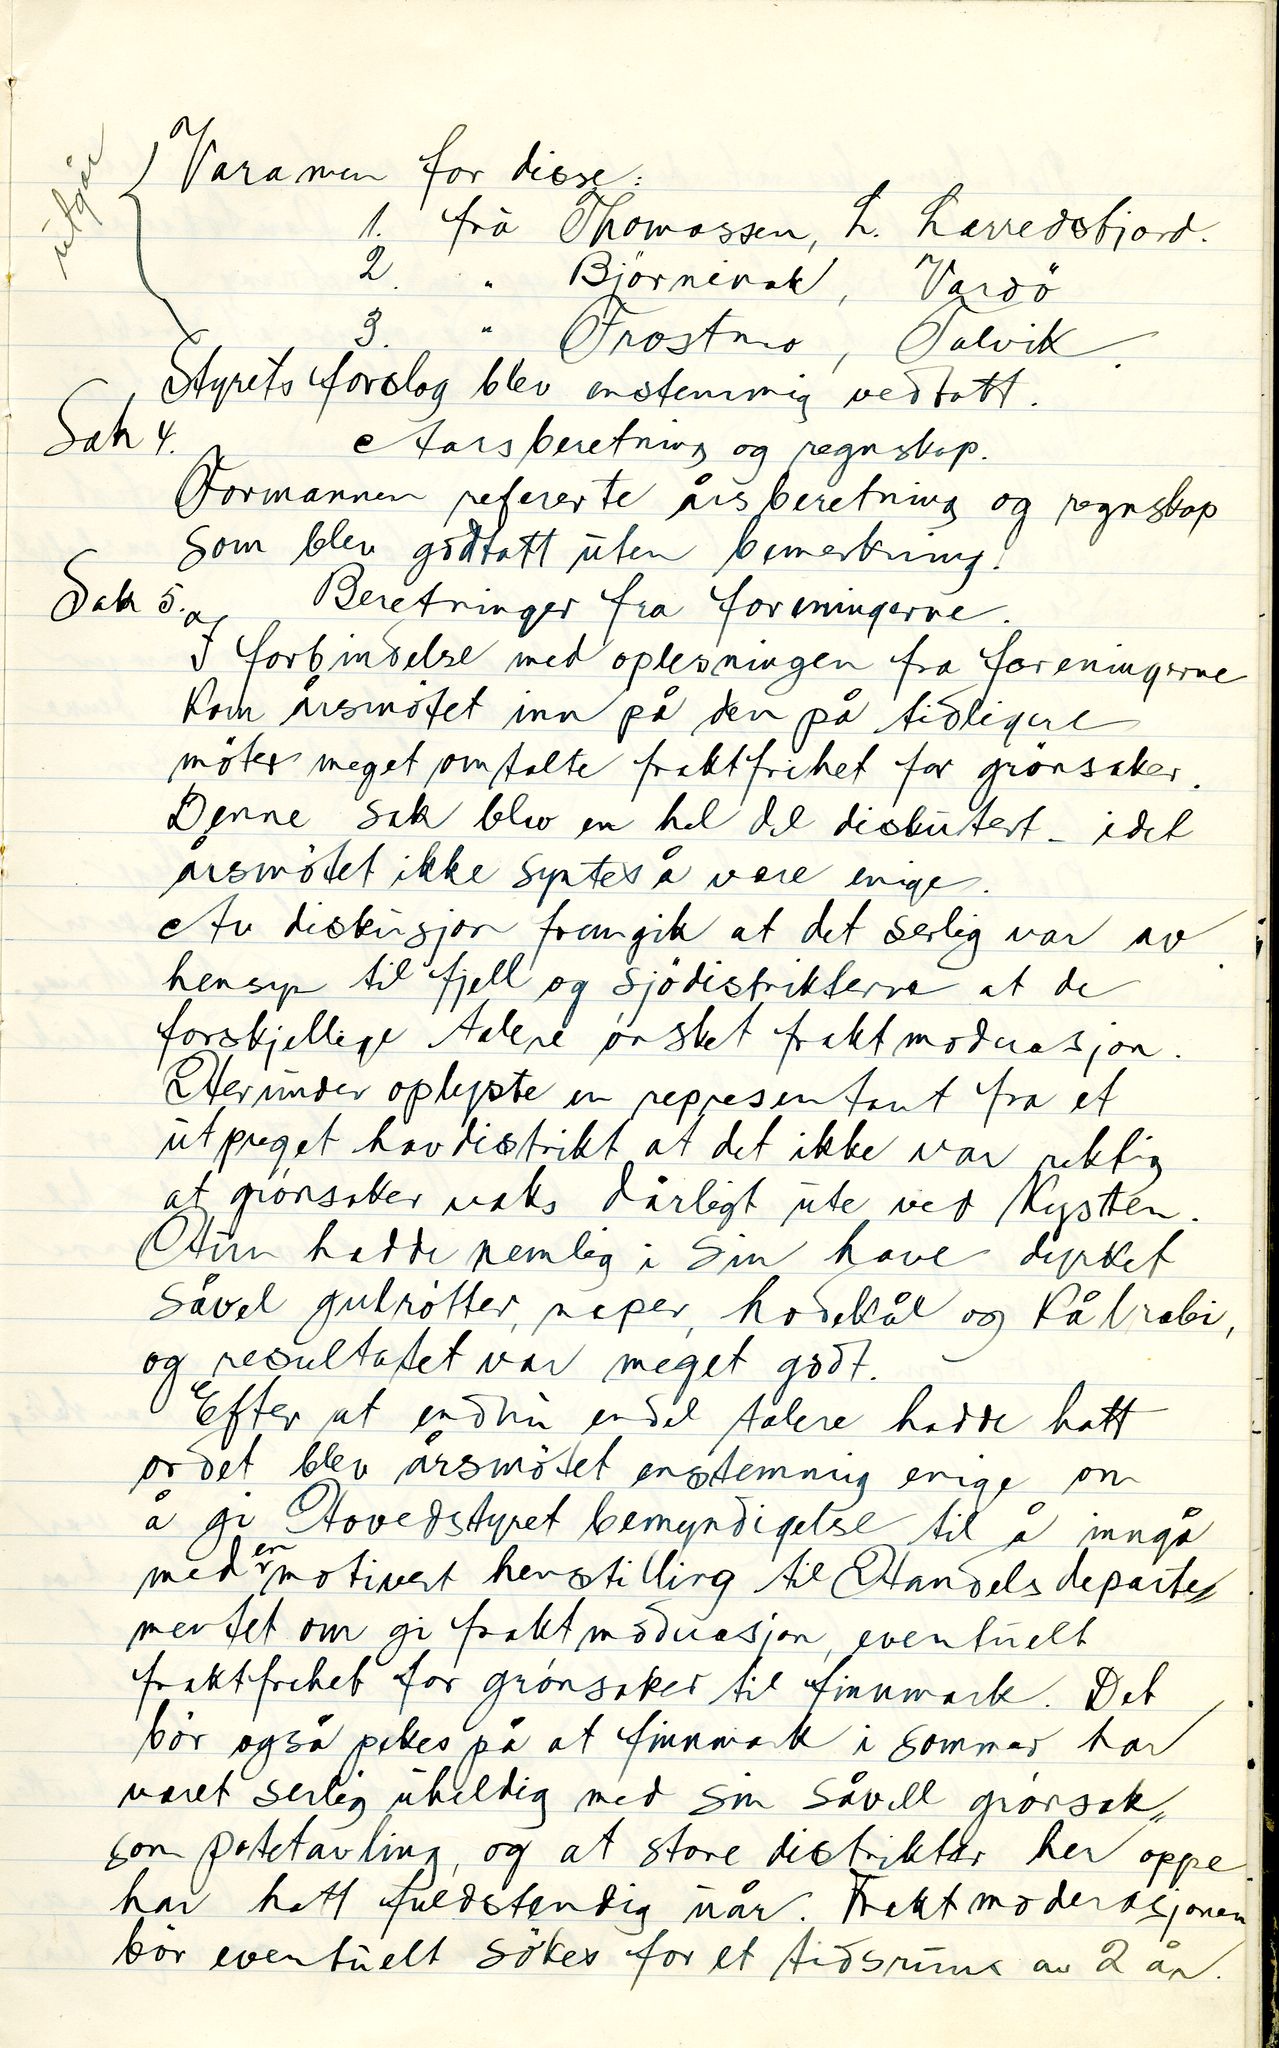 utgår
Varamen for disse:
1. frå Thomassen, L. Lerredsfjord.
2. " Björnevak, Vardö
3. " Frostmo, Talvik.
Styrets forslag blev enstemmig vedtatt.
Sak 4. Aarsberetning og regnskap.
Formannen refererte årsberetning og regnskap
som blev godtatt uten bemerkning.
Sak 5. a Beretninger fra foreningerne.
I forbindelse med oplesningen fra foreningerne
kom årsmötet inn på den på tidligere
möter meget omtalte fraktfrihet for grönsaker.
Denne sak blev en hel del diskutert - idet
årsmötet ikke syntes å være enige.
Av diskusjon fremgik at det serlig var av
hensyn til fjell og sjödistrikterne at de
forskjellige talere önsket fraktmoderasjon.
Herunder oplyste en representant fra et
utpreget havdistrikt at det ikke var riktig
at grönsaker vaks dårligt ute ved Kysten.
Hun hadde nemlig i sin have dyrket
såvel gulrötter, neper, hodekål og kålrabi,
og resultatet var meget godt.
Efter at endnu endel talere hadde hatt
ordet blev årsmötet enstemmig enige om
å gi Hovedstyret bemyndigelse til å inngå
med en motivert henstilling til Handelsdeparte=
mentet om gi fraktmoderasjon, eventuelt
fraktfrihet for grönsaker til finnmark. Det
bör også pekes på at finnmark i sommer har
været serlig uheldig med sin såvell grönsak"
som potetavling, og at store distrikter her oppe
har hatt fuldstendig uår. Fraktmoderasjonen
bör eventuelt sökes for et tidsrum av 2 år.